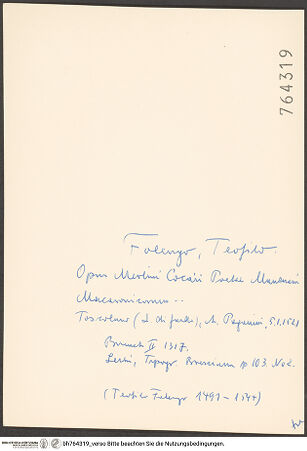 764319
Folengo, Teofilo.
Opus Merlini Cocaii Poetae Mantuani
Macaronicorum..
Toscolano (L. di Garda), A. Paganini, 5.1.1521
Brunet II 1317,
Lechi, Tipogr Bresciana p 103. No 2.
(Teofilo Folengo 1491 - 1544)
bh764319_verso Bitte beachten Sie die Nutzungsbedingungen.